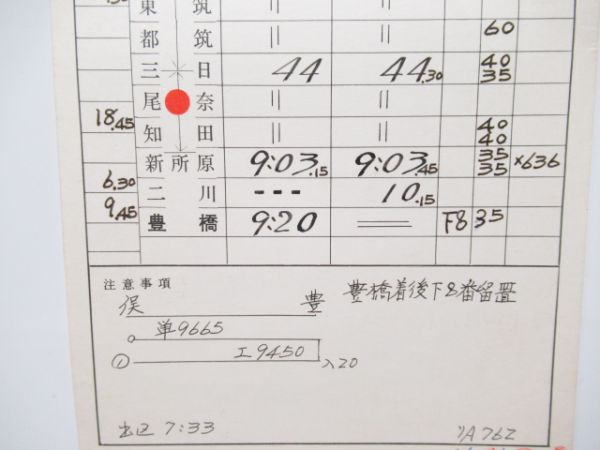 東 筑 || ||
都 筑 || || 60
三 日 44 44.30 40 35
尾 奈 || ||
18.45
知 田 || || 40 40
新所原 9:03.15 9:03.45 35 35 ×636
6.30
二 川 --- 10.15
9.45
豊 橋 9:20 = F8 35
注意事項
俣 豊 豊橋着後下8番留置
単9665
① 工9450 入20
出区 7:33 リA762